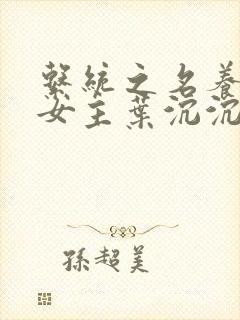 繫統之名養
女主葉沉沉
孫超美